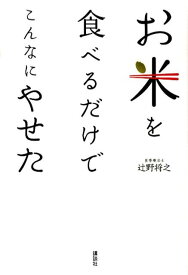 お米を
食べるだけで
こんなにやせた
管理栄養士
辻野将之
講談社